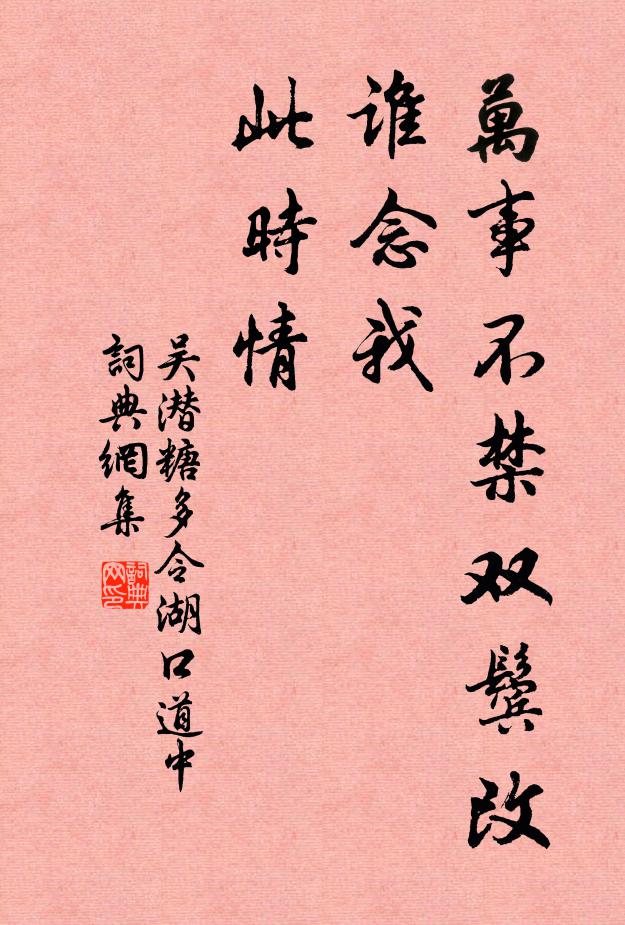 萬事不禁双鬓改
谁念我
此時情
吴潜糖多令湖口道中
詞典網集
詞典网印